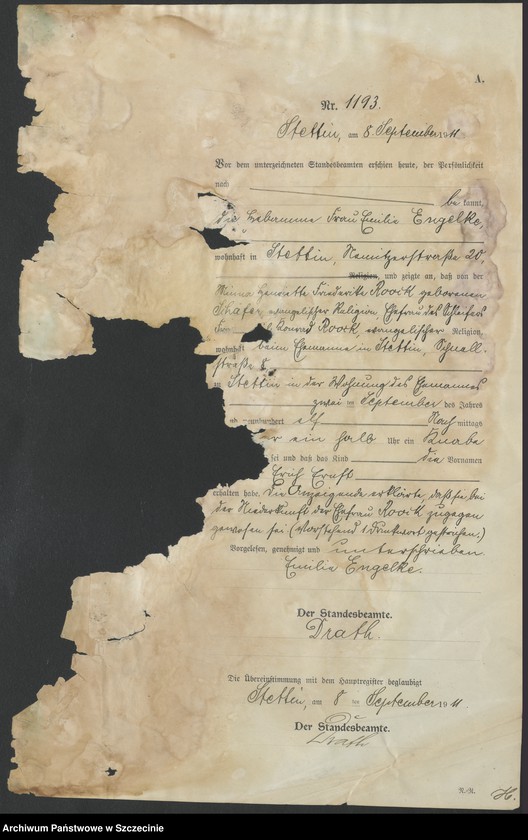 A.
Nr. 1193.
Stettin, am 8. September 1911
Vor dem unterzeichneten Standesbeamten erschien heute, der Persönlichkeit
nach
bekannt,
die Hebamme Frau Emilie Engelke,
wohnhaft in Stettin, Nemitzerstraße 20,
Religion, und zeigte an, daß von der
Minna Henriette Friederike Roock geborenen
Schäfer, evangelischer Religion, Ehefrau des
Konrad Roock, evangelischer Religion,
wohnhaft beim Ehemanne in Stettin, Schnell-
straße 8,
zu Stettin in der Wohnung des Ehemannes
zwei ten September des Jahres
elf Nachmittags
ein halb Uhr ein Knabe
sei und daß das Kind die Vornamen
Erich Ernst
erhalten habe. Die Anzeigende erklärte, daß sie bei
der Niederkunft der Ehefrau Roock zugegen
gewesen sei (Vorstehend 1 Druckwort gestrichen.)
Vorgelesen, genehmigt und unterschrieben
Emilie Engelke.
Der Standesbeamte.
Drath.
Die Übereinstimmung mit dem Hauptregister beglaubigt
Stettin, am 8 ten September 1911
Der Standesbeamte.
Drath
N.-R.
H.
Archiwum Państwowe w Szczecinie